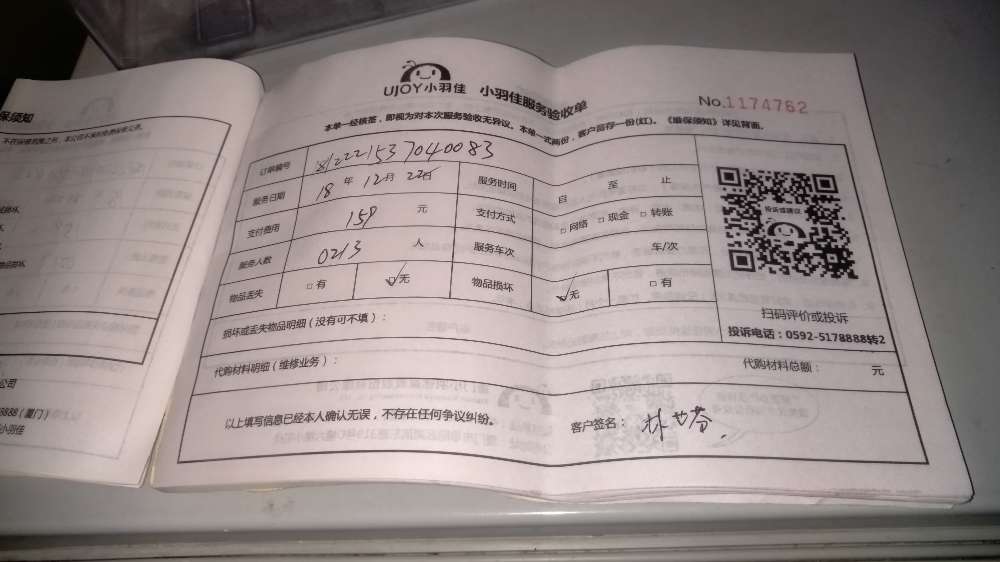 保须知
UJOY小羽佳 小羽佳服务验收单
No.1174762
本单一经核签，即视为对本次服务验收无异议。本单一式两份，客户留存一份(红)。《维保须知》详见背面。
订单编号
服务日期 18 年 12 月 22 日 服务时间 自 至 止
支付费用 159 元 支付方式 □ 网络 □ 现金 □ 转账
服务人数 0213 人 服务车次 车/次
物品丢失 □ 有 ☑ 无 物品损坏 ☑ 无 □ 有
投诉或建议
扫码评价或投诉
投诉电话：0592-5178888转2
损坏或丢失物品明细（没有可不填）：
代购材料明细（维修业务）： 代购材料总额： 元
以上填写信息已经本人确认无误，不存在任何争议纠纷。 客户签名：
公司
8888（厦门）
小羽佳